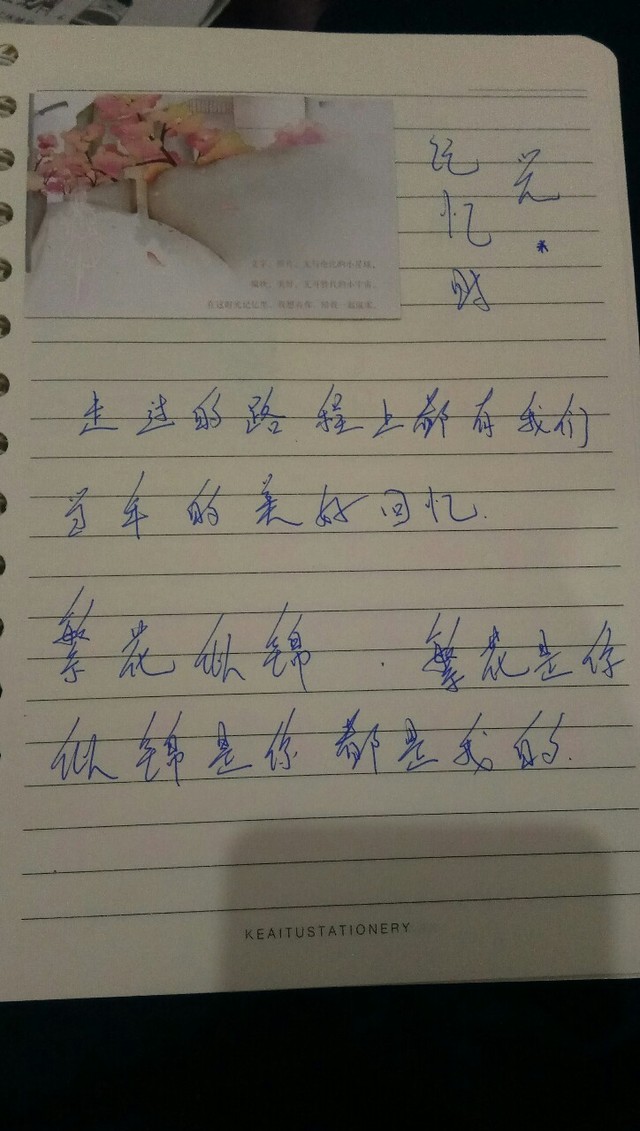 记忆时
光
走过的路程上都有我们
当年的美好回忆.
繁花似锦 . 繁花是你
似锦是你都是我的.
KEAITUSTATIONERY